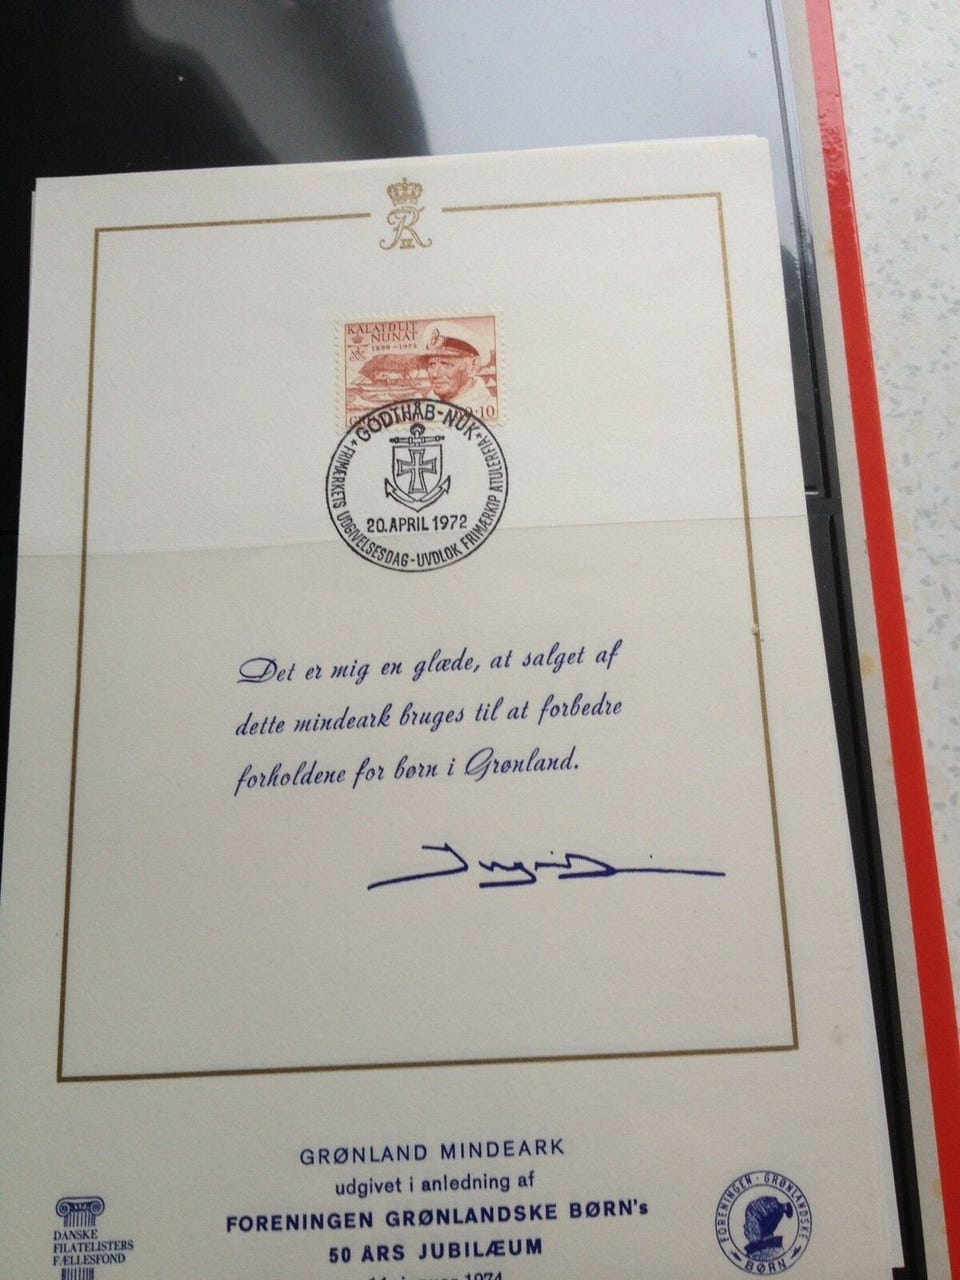 R
II
KALATDLIT
NUNAT
1899-1972
60+10
GODTHÅB-NUK
FRIMÆRKETS UDGIVELSESDAG-UVDLOK FRIMÆRKIP ATULERFIA
20. APRIL 1972
Det er mig en glæde, at salget af
dette mindeark bruges til at forbedre
forholdene for børn i Grønland.
Ingrid
GRØNLAND MINDEARK
udgivet i anledning af
FORENINGEN GRØNLANDSKE BØRN's
50 ÅRS JUBILÆUM
januar 1974
DANSKE
FILATELISTERS
FÆLLESFOND
FORENINGEN · GRØNLANDSKE
BØRN